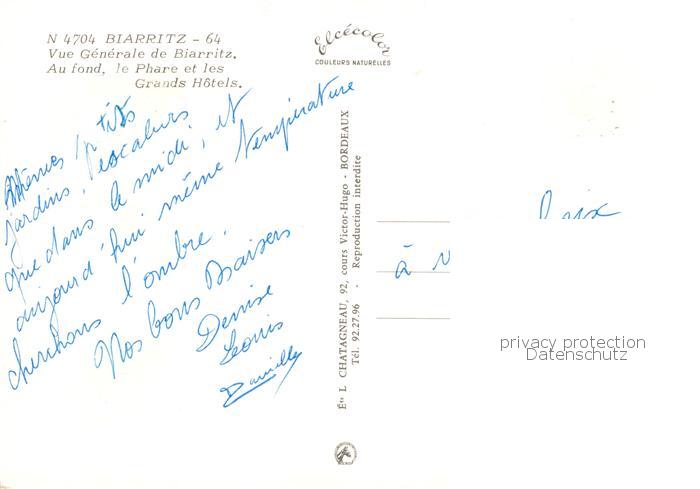 N 4704 BIARRITZ - 64
Vue Générale de Biarritz.
Au fond, le Phare et les
Grands Hôtels.
Elcécolor
COULEURS NATURELLES
Mêmes p'tits
jardins, escaliers
que dans le midi, et
aujourd'hui même température
cherchons l'ombre.
Nos bons Baisers
Denise
Louis
Danielle
Éts L CHATAGNEAU, 92, cours Victor-Hugo - BORDEAUX
Tél. 92.27.96 - Reproduction interdite
à
privacy protection
Datenschutz